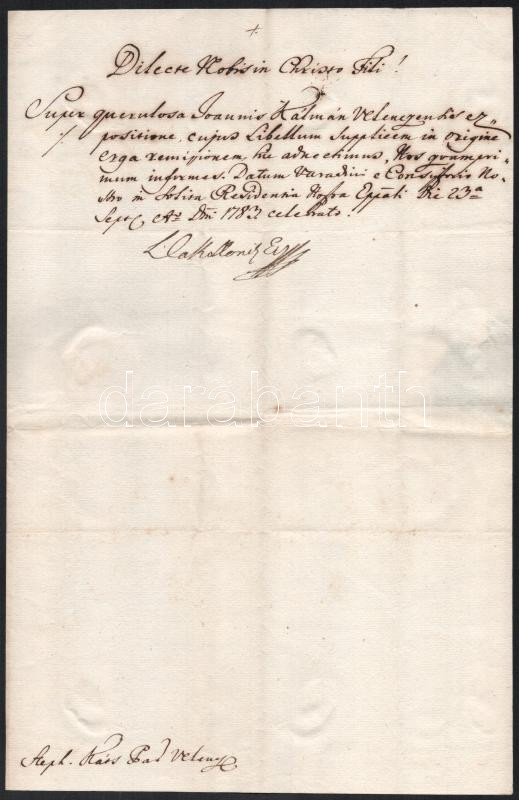 +
Dilecte Nobis in Christo Fili!
Super querulosa Joannis Kalmán Velenczensis ex-
positione, cujus Libellum Supplicem in origine
erga remissionem hic adnectimus, Nos quampri-
mum informes. Datum Varadini e Consistorio No-
stro in Solita Residentia Nostra Eppali Die 23a
Sept. Ao Dni 1783 celebrato.
darabanth
Steph.